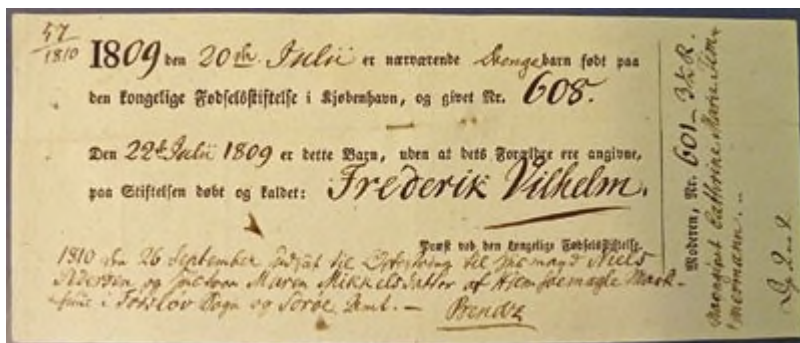 57
1810
1809 den 20de Julii er nærværende Drengebarn født paa
den kongelige Fødselsstiftelse i Kjøbenhavn, og givet Nr. 608.
Den 22de Julii 1809 er dette Barn, uden at dets Forældre ere angivne,
paa Stiftelsen døbt og kaldet: Frederik Vilhelm.
Præst ved den kongelige Fødselsstiftelse.
1810 den 26 September indsat til Opfostring til Huusmand Niels
Pedersen og Hustrue Maren Mikkelsdatter af
i Sogn og Soroe Amt. –
Moderen, Nr. 601 – 3½ R.
Cathrine Marie